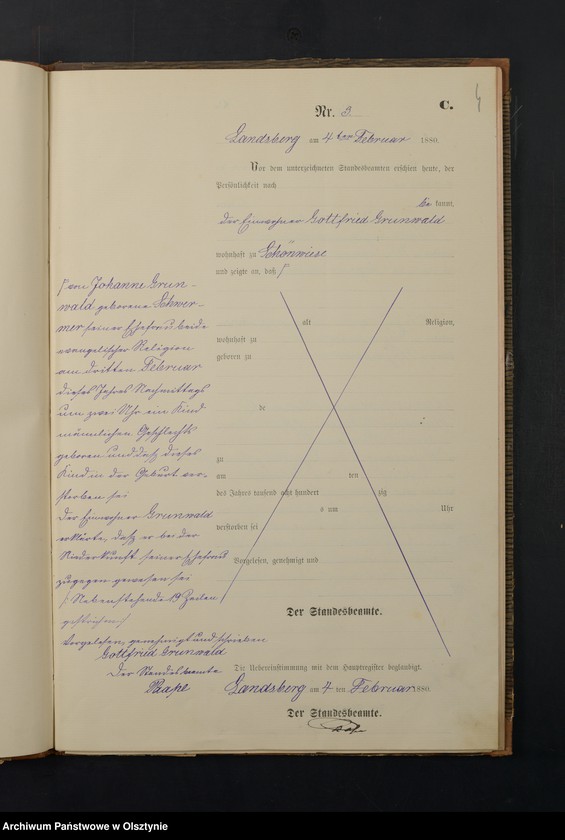 C.
4
Nr. 3.
Landsberg am 4ten Februar 1880.
Vor dem unterzeichneten Standesbeamten erschien heute, der
Persönlichkeit nach
be kannt,
der Einwohner Gottfried Grunwald
wohnhaft zu Schönwiese
und zeigte an, daß
von Johanne Grun-
wald geborene Schwer-
mer seiner Ehefrau beide
evangelischer Religion
am dritten Februar
dieses Jahres Nachmittags
um zwei Uhr ein Kind
männlichen Geschlechts
geboren und daß dieses
Kind in der Geburt ver-
storben sei
Der Einwohner Grunwald
erklärte, daß er bei der
Niederkunft seiner Ehefrau
zugegen gewesen sei
Nebenstehende 19 Zeilen
gestrichen
Vorgelesen, genehmigt und unterschrieben
Gottfried Grunwald
Der Standesbeamte
alt Religion,
wohnhaft zu
geboren zu
de
zu
am ten
des Jahres tausend acht hundert zig
s um Uhr
verstorben sei
Vorgelesen, genehmigt und
Der Standesbeamte.
Die Uebereinstimmung mit dem Hauptregister beglaubigt.
Landsberg am 4 ten Februar 1880.
Der Standesbeamte.
Archiwum Państwowe w Olsztynie